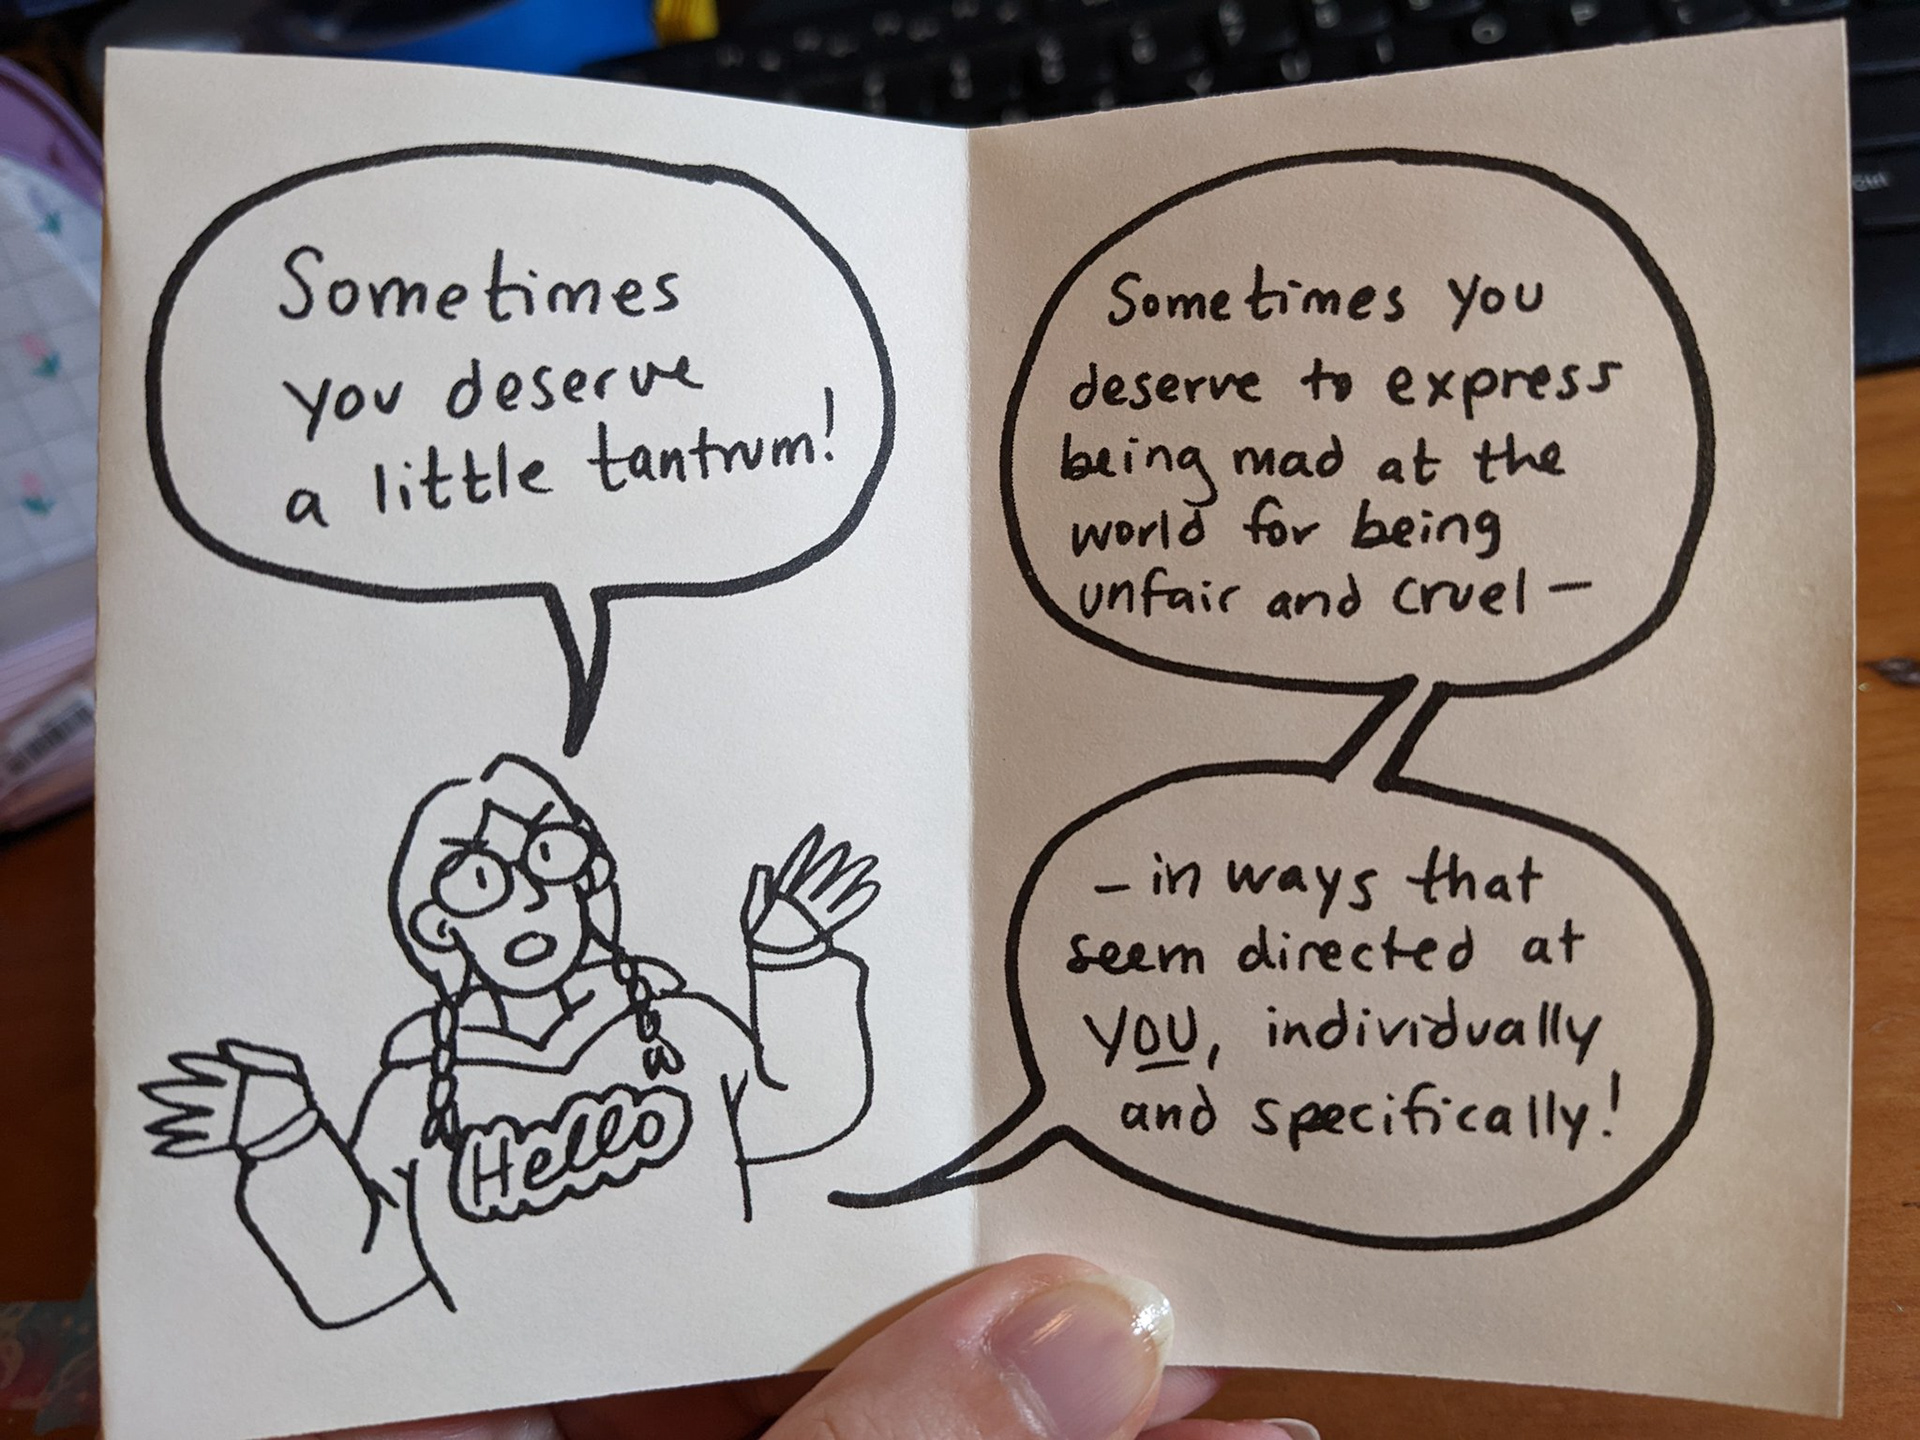 Sometimes
you deserve
a little tantrum!
Hello
Sometimes you
deserve to express
being mad at the
world for being
unfair and cruel —
— in ways that
seem directed at
YOU, individually
and specifically!
Ctrl